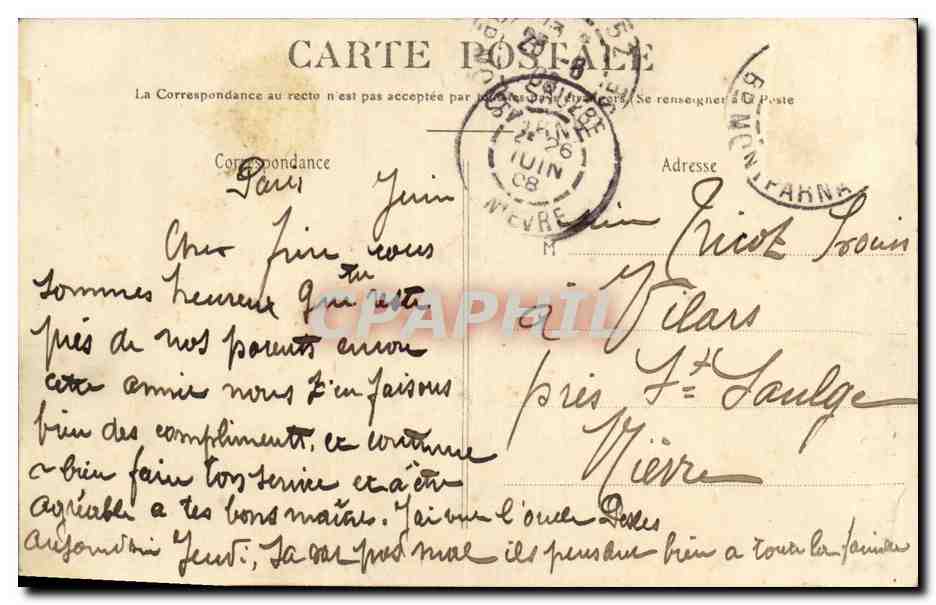 CARTE POSTALE
La Correspondance au recto n'est pas acceptée par tous les pays étrangers (Se renseigner à la Poste
Correspondance
Paris Juin
Cher frère nous
sommes heureux que tu reste
près de nos parents encore
cette année nous t'en faisons
bien des compliments. et continue
a bien faire ton service et a être
agréable a tes bons maitres. J'ai vue l'oncle
aujourd'hui Jeudi, Sa va pas mal ils pensent bien a toute la famille
Adresse
M Tricot
à Vilars
près St Saulge
Nièvre
ST SAULGE
26
JUIN
08
NIEVRE
MONTPARNA
CPAPHIL